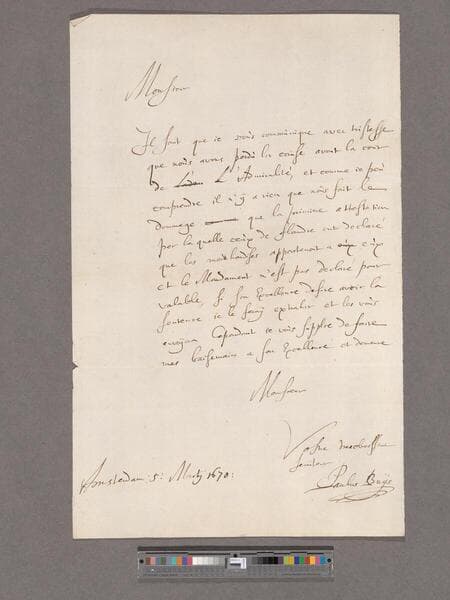 Monsieur
Il faut que ie vous communique avec tristesse
que nous avons perdu la cause avant la cour
de L'Admiralité, et comme ie peu
comprendre il n'y a rien que nous fait le
dommage que la attestation
par la quelle ceux de Flandre ont declaré
que les marchandises appartenant a eux
et le Mandament n'est pas declaré pour
valable. Si son Excellence desire avoir la
sentence ie le feray extraher et les vous
envoyer Cependant ie vous supplie de faire
mes baisemains a son Excellence et demeure
Monsieur
Vostre
serviteur
Paulus Buijs
Amsterdam 5: Martij 1670: